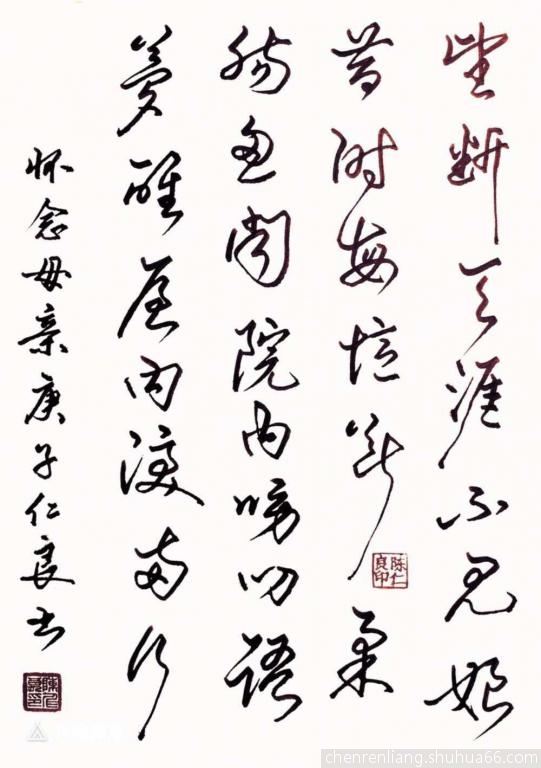 望断天涯不见娘
昔时每忆断柔
肠闻院内唠叨语
梦醒屋内涙两行
怀念母亲庚子仁良书
陈仁良印
chenrenliang.shuhua66.com